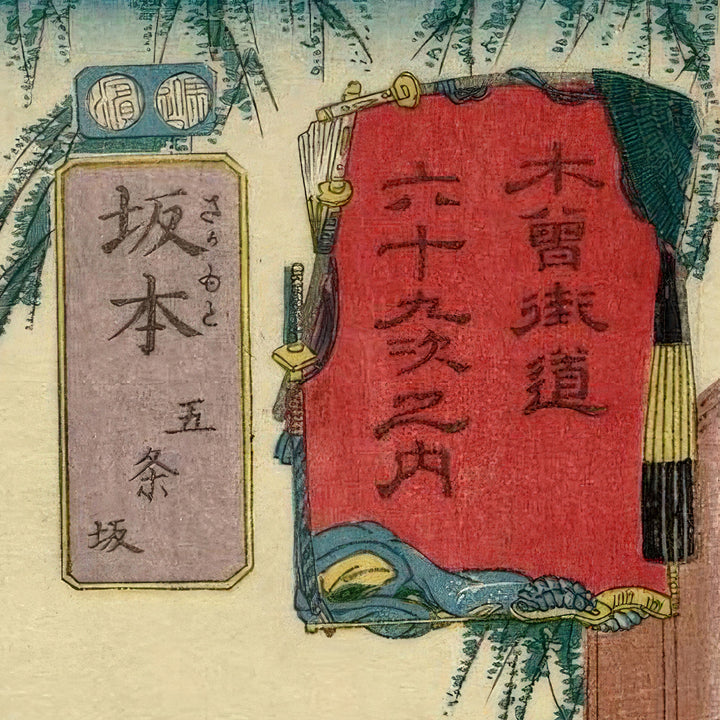 木曽街道
六十九次之内
坂本
さかもと
五条坂
濵